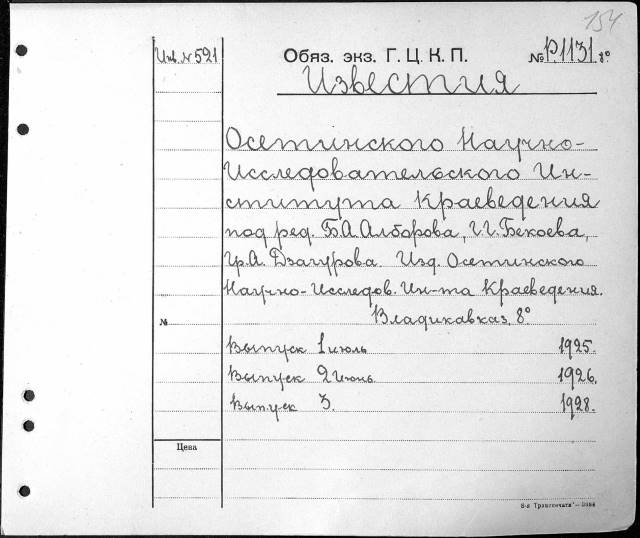 154
Инв. № 521
Обяз. экз. Г. Ц. К. П.
№ Р.1131 8°
Известия
Осетинского Научно-
Исследовательского Ин-
ститута Краеведения
под ред. Б.А. Алборова, Г.Г. Бекоева,
Гр.А. Дзагурова. Изд. Осетинского
Научно-Исследов. Ин-та Краеведения.
№
Владикавказ. 8°
Выпуск 1 июль 1925.
Выпуск 2 июнь 1926.
Выпуск 3. 1928.
Цена